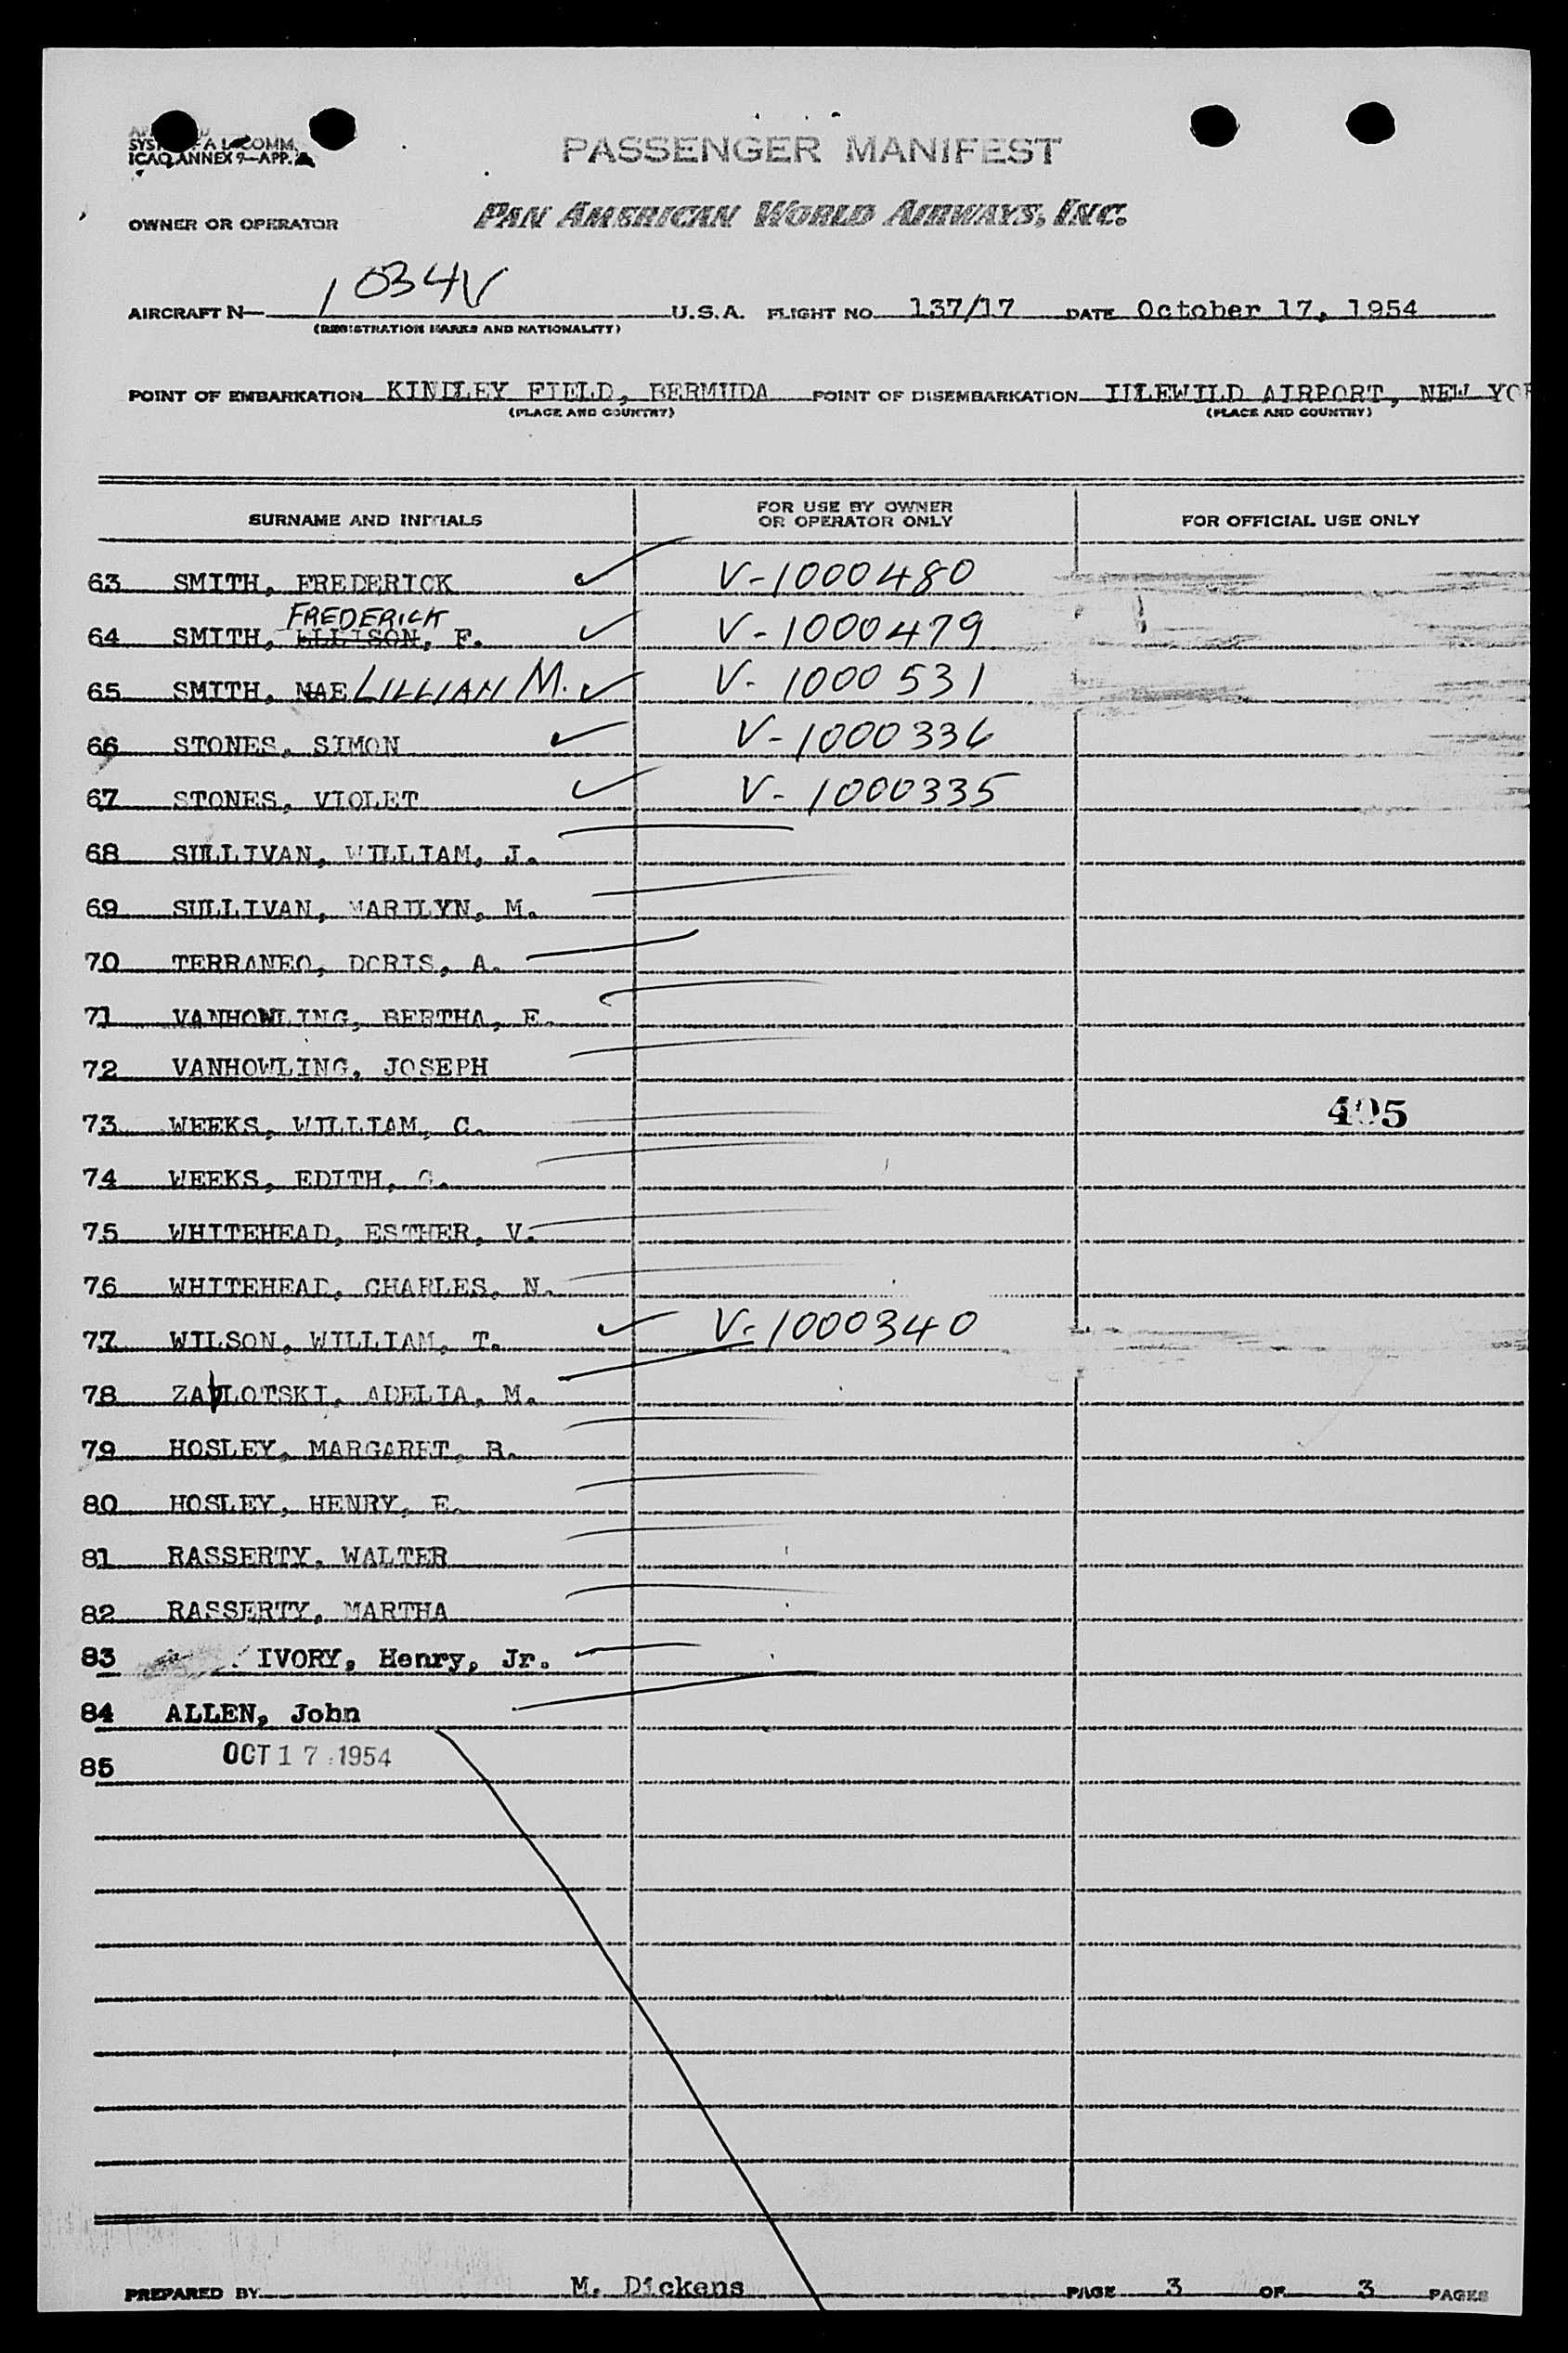 ICAO ANNEX 9—APP.
PASSENGER MANIFEST
OWNER OR OPERATOR PAN AMERICAN WORLD AIRWAYS, INC.
AIRCRAFT N— 1034V U.S.A. FLIGHT NO. 137/17 DATE October 17, 1954
(REGISTRATION MARKS AND NATIONALITY)
POINT OF EMBARKATION KINDLEY FIELD, BERMUDA POINT OF DISEMBARKATION IDLEWILD AIRPORT, NEW YOR
(PLACE AND COUNTRY) (PLACE AND COUNTRY)
SURNAME AND INITIALS FOR USE BY OWNER OR OPERATOR ONLY FOR OFFICIAL USE ONLY
63 SMITH, FREDERICK V-1000480
FREDERICK
64 SMITH, ELLISON, F. V-1000479
65 SMITH, MAE LILLIAN M. V-1000531
66 STONES, SIMON V-1000336
67 STONES, VIOLET V-1000335
68 SULLIVAN, WILLIAM, J.
69 SULLIVAN, MARILYN, M.
70 TERRANEO, DORIS, A.
71 VANHOWLING, BERTHA, E.
72 VANHOWLING, JOSEPH
73 WEEKS, WILLIAM, C. 405
74 WEEKS, EDITH, G.
75 WHITEHEAD, ESTHER, V.
76 WHITEHEAD, CHARLES, N.
77 WILSON, WILLIAM, T. V-1000340
78 ZABLOTSKI, ADELIA, M.
79 HOSLEY, MARGARET, B.
80 HOSLEY, HENRY, E.
81 RASSERTY, WALTER
82 RASSERTY, MARTHA
83 IVORY, Henry, Jr.
84 ALLEN, John
85 OCT 17 1954
PREPARED BY M. Dickens PAGE 3 OF 3 PAGES